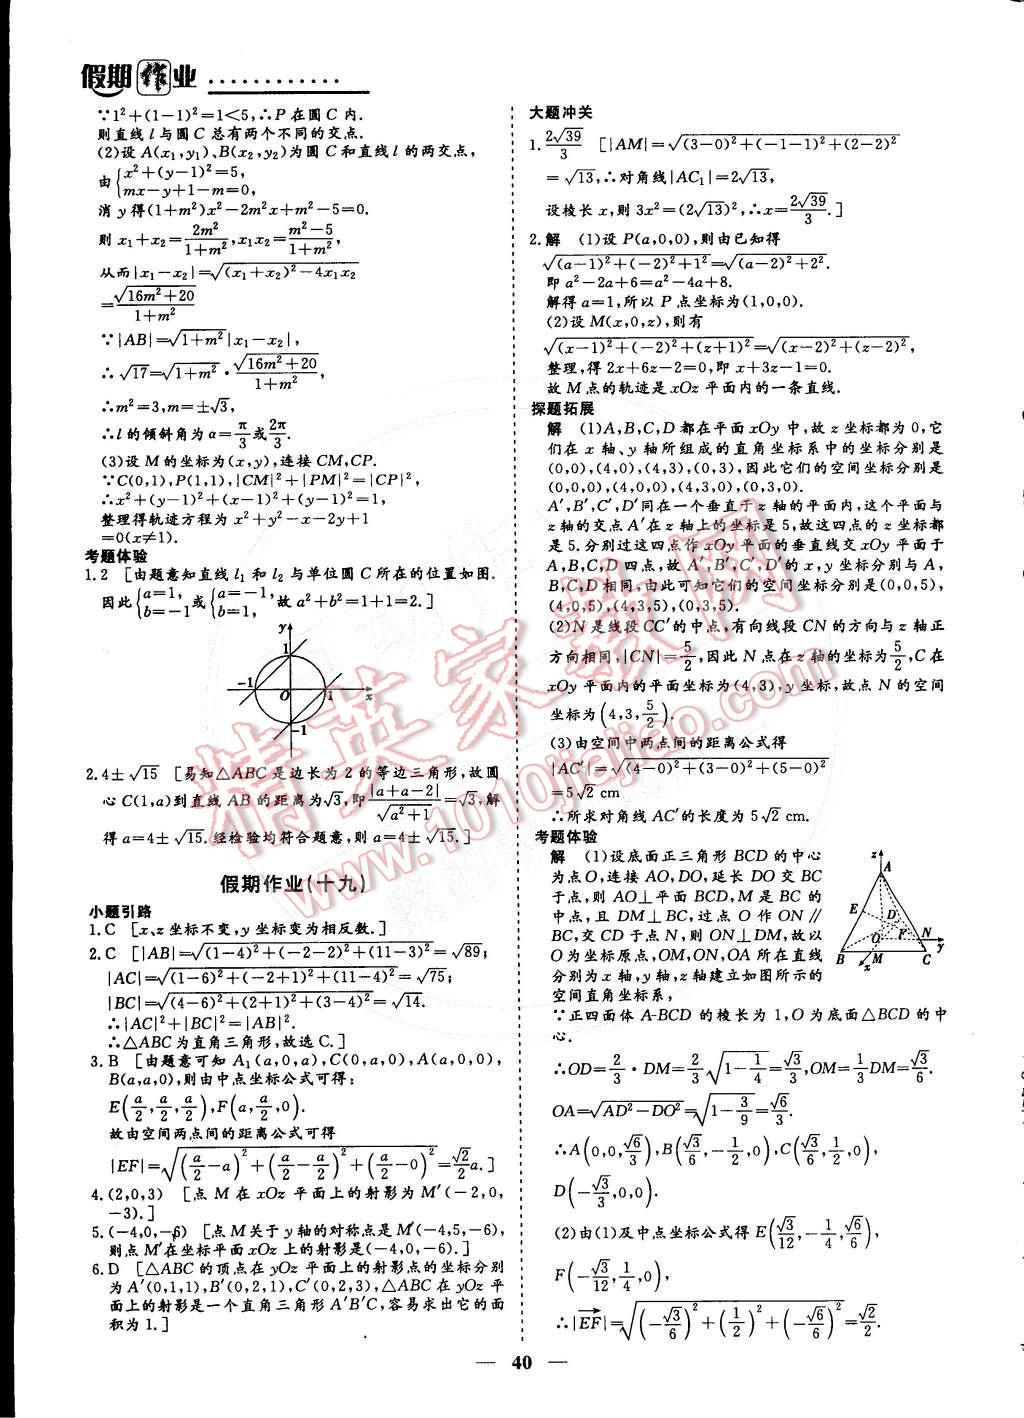 假期作业 ············
∵1²+(1-1)²=1<5,∴P在圆C内.
则直线l与圆C总有两个不同的交点.
(2)设A(x₁,y₁)、B(x₂,y₂)为圆C和直线l的两交点,
由{x²+(y-1)²=5,
mx-y+1-m=0,
消y得(1+m²)x²-2m²x+m²-5=0.
则x₁+x₂=2m²/(1+m²),x₁x₂=(m²-5)/(1+m²).
从而|x₁-x₂|=√((x₁+x₂)²-4x₁x₂)
=√(16m²+20)/(1+m²)
∵|AB|=√(1+m²)|x₁-x₂|,
∴√17=√(1+m²)·√(16m²+20)/(1+m²)
∴m²=3,m=±√3,
∴l的倾斜角为α=π/3或2π/3.
(3)设M的坐标为(x,y),连接CM,CP.
∵C(0,1),P(1,1),|CM|²+|PM|²=|CP|²,
∴x²+(y-1)²+(x-1)²+(y-1)²=1,
整理得轨迹方程为x²+y²-x-2y+1
=0(x≠1).
考题体验
1.2 [由题意知直线l₁和l₂与单位圆C所在的位置如图.
因此{a=1, b=-1或{a=-1, b=1,故a²+b²=1+1=2.]
y
1
-1 O 1 x
-1
2.4±√15 [易知△ABC是边长为2的等边三角形,故圆
心C(1,a)到直线AB的距离为√3,即|a+a-2|/√(a²+1)=√3,解
得a=4±√15.经检验均符合题意,则a=4±√15.]
假期作业(十九)
小题引路
1.C [x,z坐标不变,y坐标变为相反数.]
2.C [|AB|=√((1-4)²+(-2-2)²+(11-3)²)=√89;
|AC|=√((1-6)²+(-2+1)²+(11-4)²)=√75;
|BC|=√((4-6)²+(2+1)²+(3-4)²)=√14.
∴|AC|²+|BC|²=|AB|².
∴△ABC为直角三角形,故选C.]
3.B [由题意可知A₁(a,0,a),C(0,a,0),A(a,0,0),
B(a,a,0),则由中点坐标公式可得:
E(a/2,a/2,a/2),F(a,a/2,0).
故由空间两点间的距离公式可得
|EF|=√((a/2-a)²+(a/2-a/2)²+(a/2-0)²)=√2/2a.]
4.(2,0,3) [点M在xOz平面上的射影为M′(-2,0,
-3).]
5.(-4,0,-6) [点M关于y轴的对称点是M′(-4,5,-6),
则点M′在坐标平面xOz上的射影是(-4,0,-6).]
6.D [△ABC的顶点在yOz平面上的射影点的坐标分别
为A′(0,1,1),B′(0,2,1),C′(0,2,3),△ABC在yOz平
面上的射影是一个直角三角形A′B′C,容易求出它的面
积为1.]
大题冲关
1.2√39/3 [|AM|=√((3-0)²+(-1-1)²+(2-2)²)
=√13,∴对角线|AC₁|=2√13,
设棱长x,则3x²=(2√13)²,∴x=2√39/3.]
2.解 (1)设P(a,0,0),则由已知得
√((a-1)²+(-2)²+1²)=√((a-2)²+2²).
即a²-2a+6=a²-4a+8.
解得a=1,所以P点坐标为(1,0,0).
(2)设M(x,0,z),则有
√((x-1)²+(-2)²+(z+1)²)=√((x-2)²+(z-2)²,
整理,得2x+6z-2=0,即x+3z-1=0.
故M点的轨迹是xOz平面内的一条直线.
探题拓展
解 (1)A,B,C,D都在平面xOy中,故z坐标都为0,它
们在x轴、y轴所组成的直角坐标系中的坐标分别是
(0,0),(4,0),(4,3),(0,3),因此它们的空间坐标分别是
(0,0,0),(4,0,0),(4,3,0),(0,3,0).
A′,B′,C′,D′同在一个垂直于z轴的平面内,这个平面与
z轴的交点A′在z轴上的坐标是5,故这四点的z坐标都
是5.分别过这四点作xOy平面的垂直线交xOy平面于
A,B,C,D四点,故A′,B′,C′,D′的x,y坐标分别与A,
B,C,D相同,由此可知它们的空间坐标分别是(0,0,5),
(4,0,5),(4,3,5),(0,3,5).
(2)N是线段CC′的中点,有向线段CN的方向与z轴正
方向相同,|CN|=5/2,因此N点在z轴的坐标为5/2,C在
xOy平面内的平面坐标为(4,3),y坐标,故点N的空间
坐标为(4,3,5/2).
(3)由空间中两点间的距离公式得
|AC′|=√((4-0)²+(3-0)²+(5-0)²)
=5√2 cm
∴所求对角线AC′的长度为5√2 cm.
考题体验
解 (1)设底面正三角形BCD的中心
为点O,连接AO,DO,延长DO交BC
于点,则AO⊥平面BCD,M是BC的
中点,且DM⊥BC,过点O作ON∥
BC,交CD于点N,则ON⊥DM,故以
O为坐标原点,OM,ON,OA所在直线
分别为x轴,y轴,z轴建立如图所示的
空间直角坐标系,
z
A
E D
O F N y
B M C
x
∵正四面体A-BCD的棱长为1,O为底面△BCD的中
心.
∴OD=2/3·DM=2/3√(1-1/4)=√3/3,OM=1/3DM=√3/6.
OA=√(AD²-DO²)=√(1-3/9)=√6/3.
∴A(0,0,√6/3),B(√3/6,-1/2,0),C(√3/6,1/2,0),
D(-√3/3,0,0).
(2)由(1)及中点坐标公式得E(√3/12,-1/4,√6/6),
F(-√3/12,1/4,0),
∴|EF|=√((-√3/6)²+(1/2)²+(-√6/6)²)=√2/2.
— 40 —
精英家教网
www.1010jiajiao.com